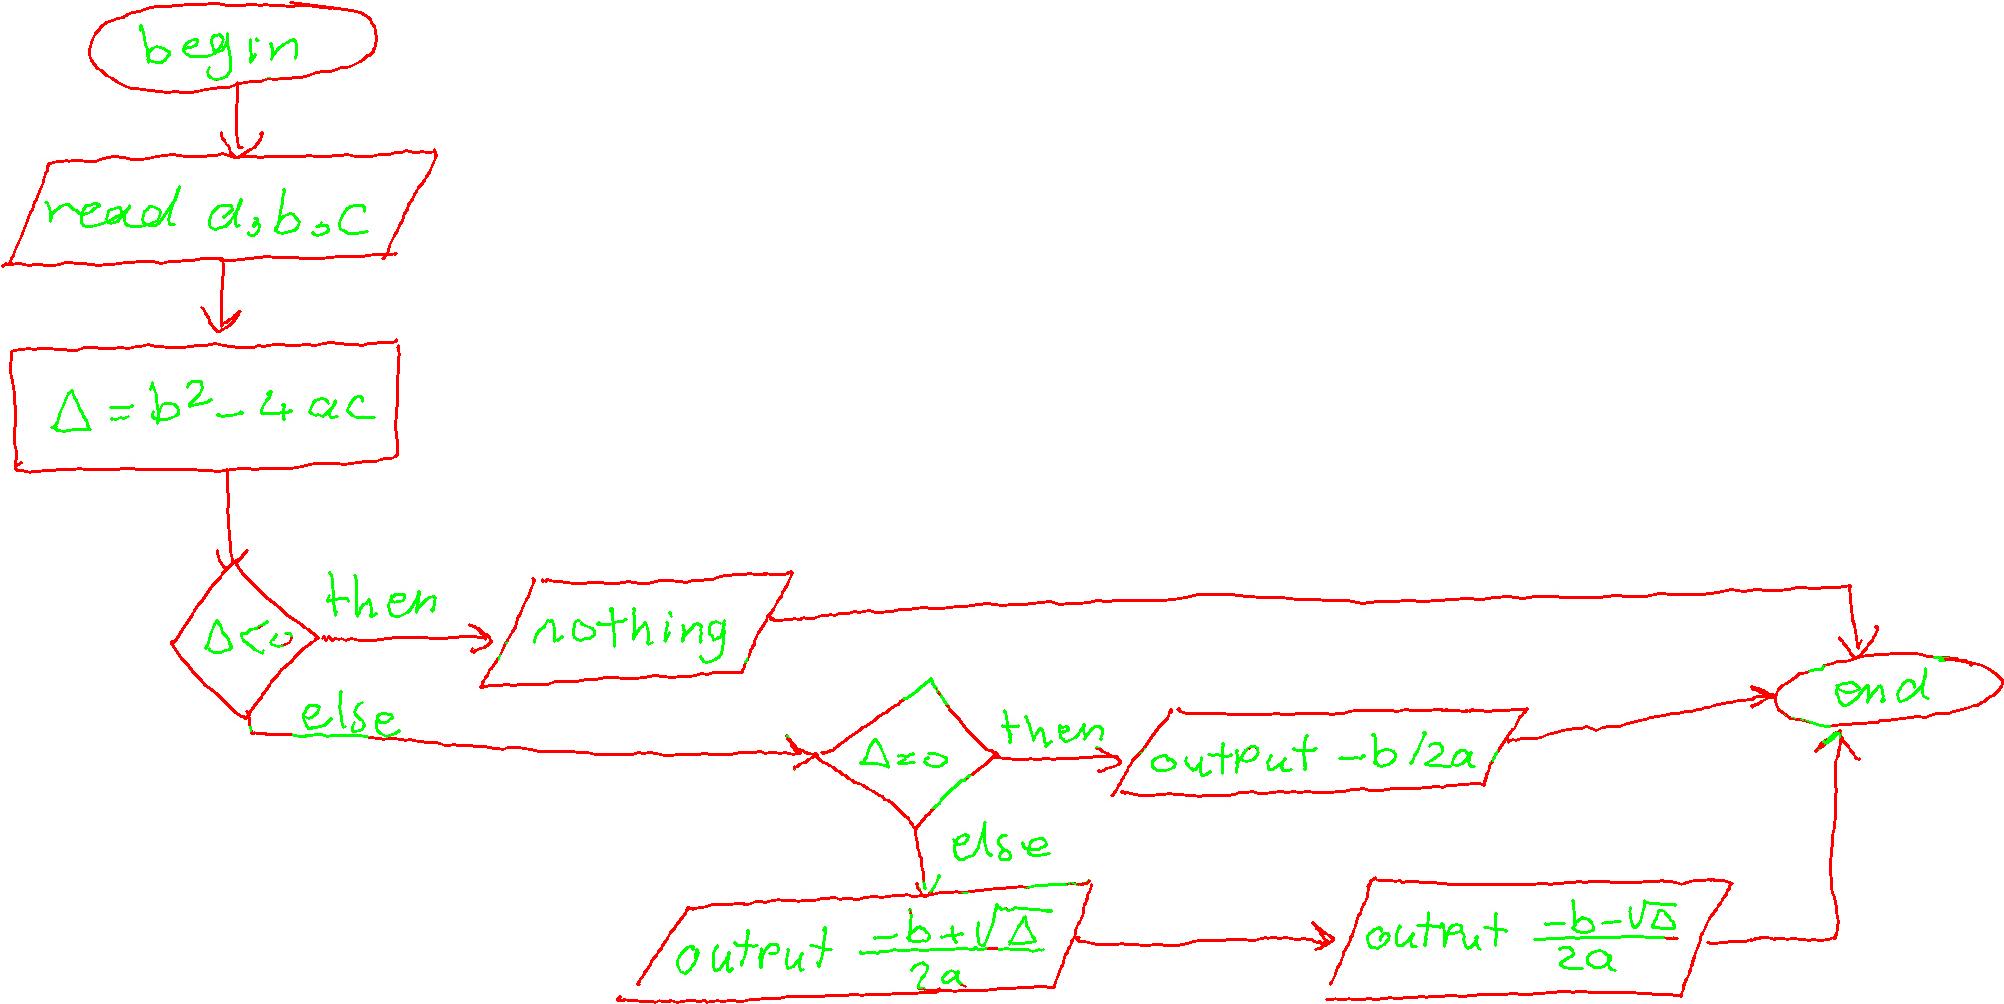 begin
read a,b,c
Δ=b²-4ac
Δ<0
then
nothing
else
end
Δ=0
then
output -b/2a
else
output (-b+√Δ)/2a
output (-b-√Δ)/2a